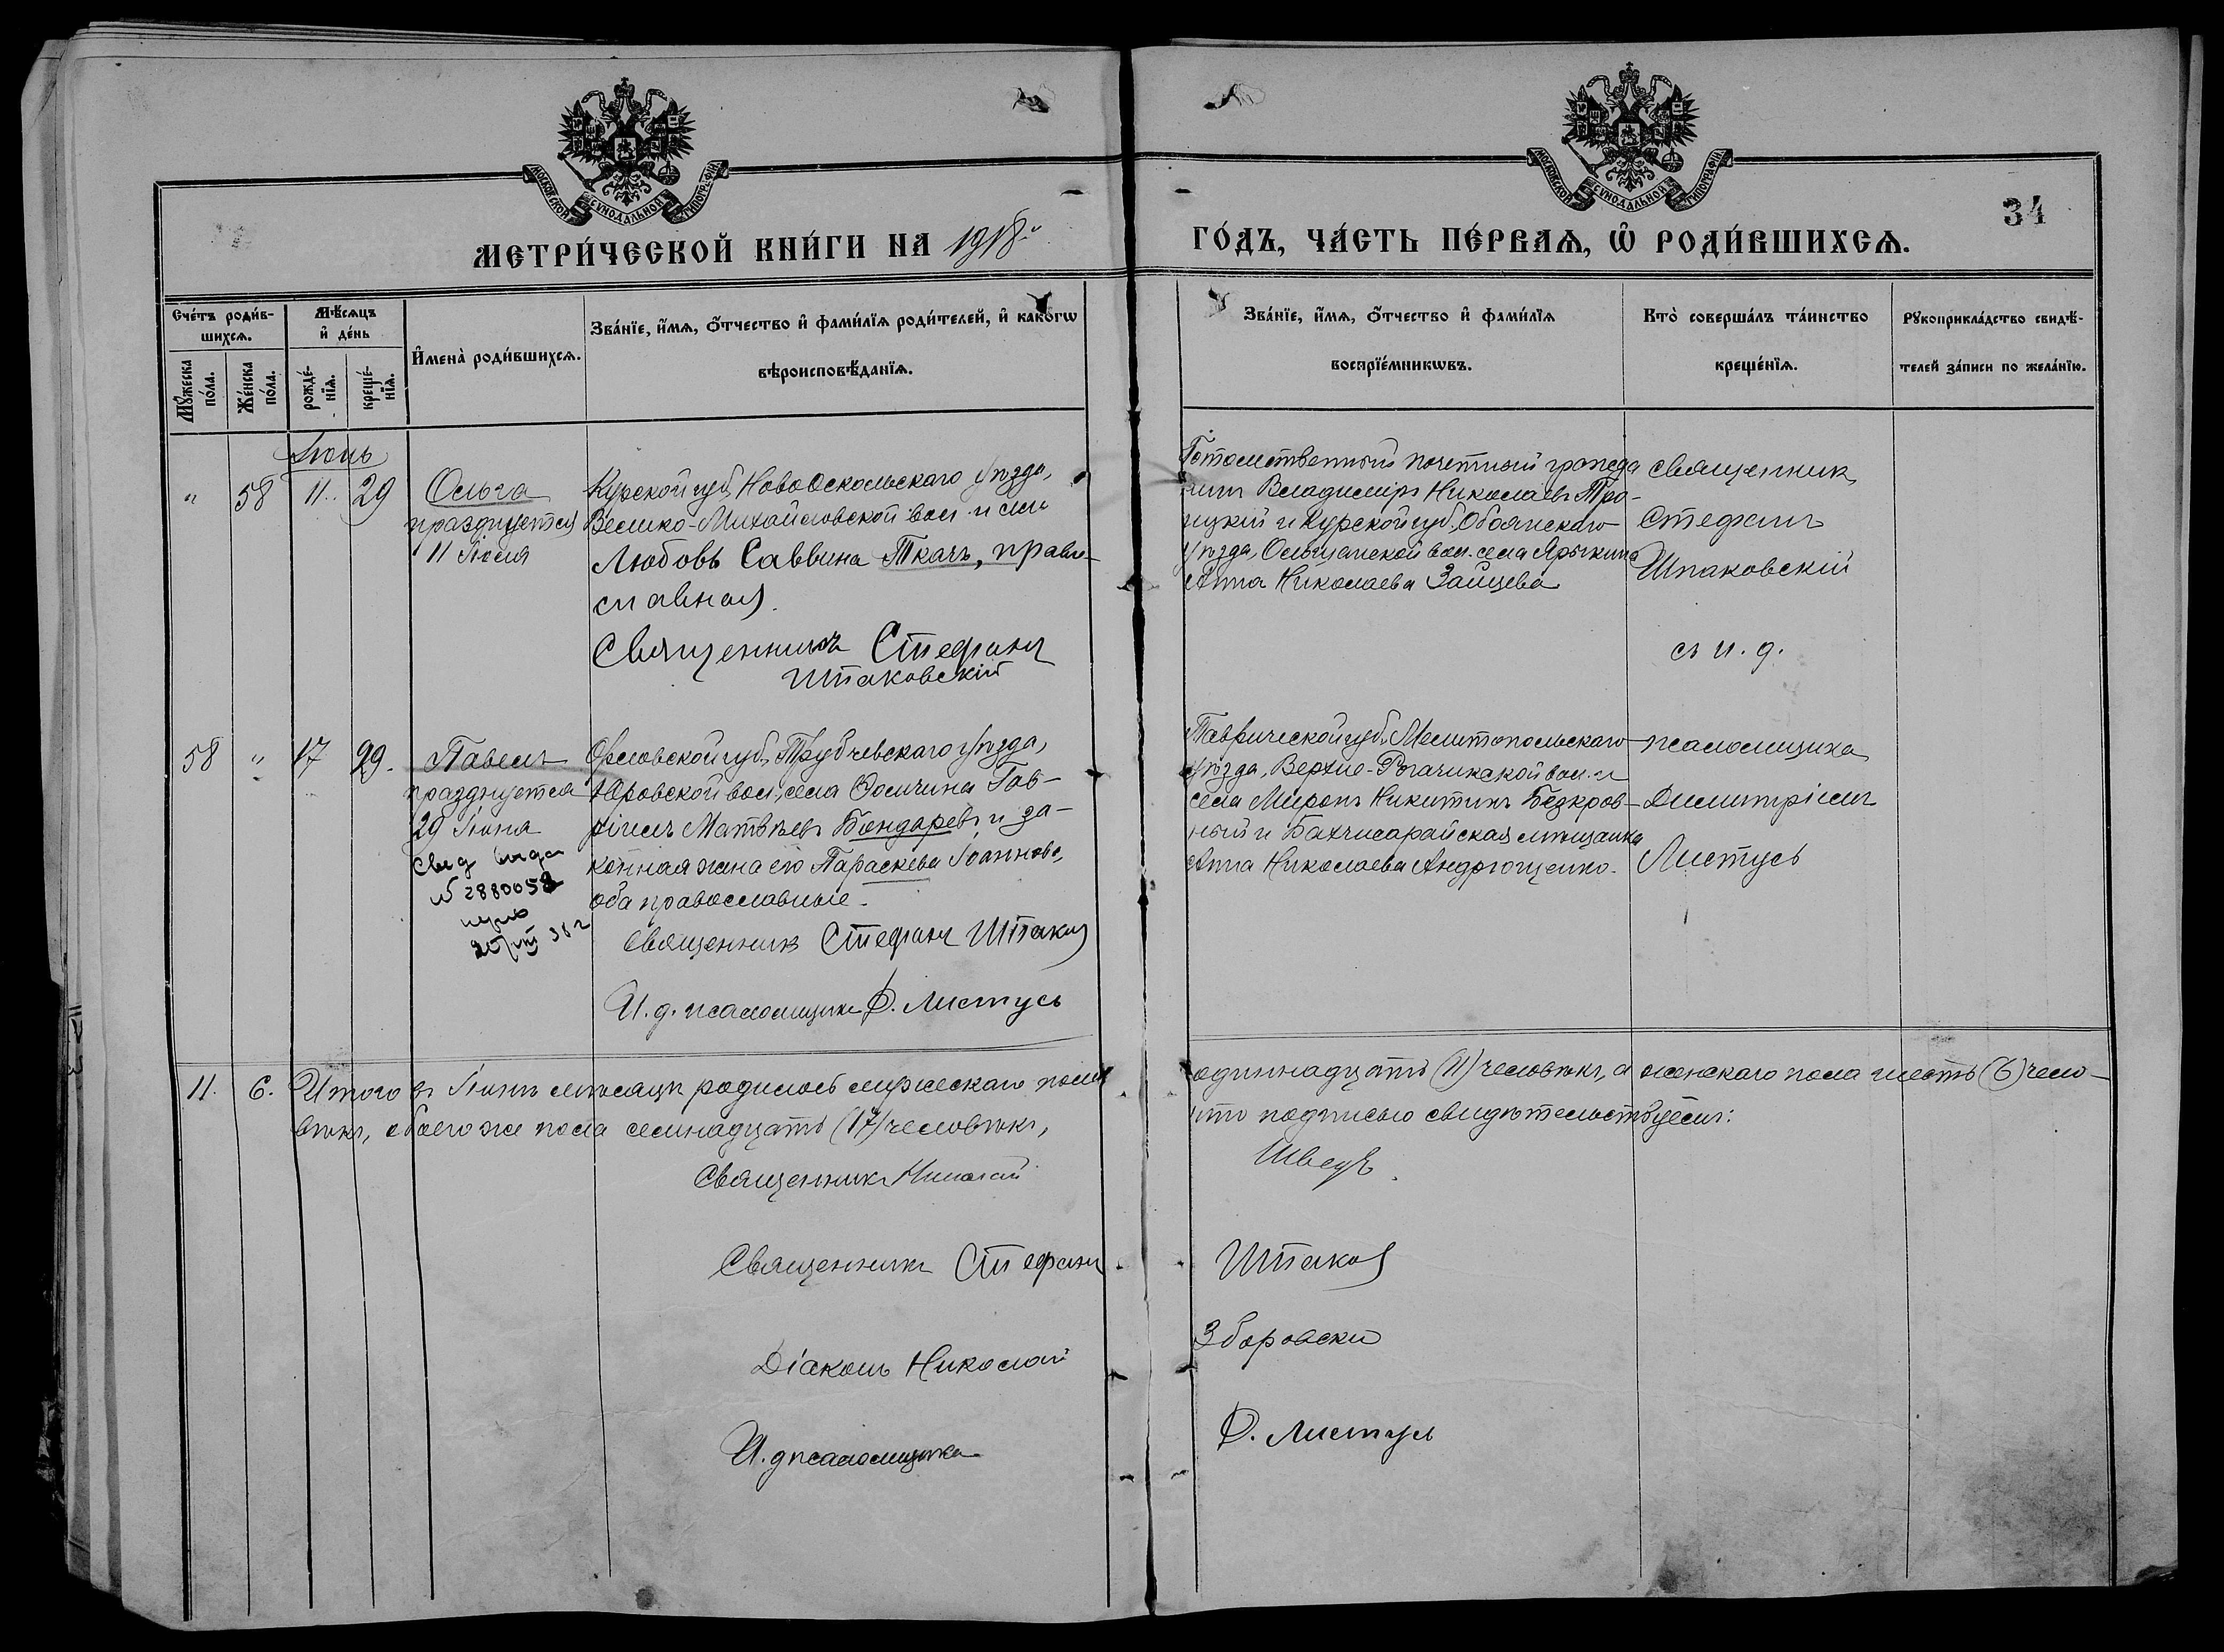 МОСКОВСКОЙ СѴНОДАЛЬНОЙ ТИПОГРАФІИ
МОСКОВСКОЙ СѴНОДАЛЬНОЙ ТИПОГРАФІИ
34
МЕТРИ́ЧЕСКОЙ КНИ́ГИ НА 1918 й ГО́ДЪ, ЧА́СТЬ ПЕ́РВАѦ, Ѡ РОДИ́ВШИХСѦ.
Сче́тъ роди́в-
шихсѧ.
Мꙋ́жеска по́ла.
Же́нска по́ла.
Мѣ́сѧцъ и҆ де́нь
рожде́-нїѧ.
креще́-нїѧ.
И҆мена̀ роди́вшихсѧ.
Зва́нїе, и҆́мѧ, ѻ҆́тчество и҆ фами́лїѧ роди́телей, и҆ како́гѡ
вѣроисповѣ́данїѧ.
Зва́нїе, и҆́мѧ, ѻ҆́тчество и҆ фами́лїѧ
воспрїе́мникѡвъ.
Кто̀ соверша́лъ та́инство
креще́нїѧ.
Рꙋкоприкла́дство свидѣ́-
телей за́писи по жела́нїю.
Іюнь
" 58 11. 29
Ольга
празднуется
11 Іюля
Курской губ. НовоОскольскаго уѣзда,
Велико-Михайловской вол. и сл.
Любовь Саввина Ткачъ, право-
славная.
Священникъ Стефанъ
Шпаковскій
Потомственный почетный гражда
нинъ Владиміръ Николаевъ Тро-
ицкій и Курской губ. Обоянскаго
уѣзда, Ольшанской вол. села
Анна Николаева Зайцева
священник
Стефанъ
Шпаковскій
съ и. д.
58 " 17 29.
Павелъ
празднуется
29 Іюня
Свид
№ 2880058
Орловской губ. Трубчевскаго уѣзда,
Юровской вол., села Гав-
ріилъ Матвѣевъ Бондаревъ и за-
конная жена его Параскева Іоаннова,
оба православные.
Священникъ Стефанъ Шпаков
И. д. псаломщика Д. Листусь
Таврической губ. Мелитопольскаго
уѣзда, Верхне-Рогачикской вол. и
села Миронъ Никитинъ Безкров-
ный и Бахчисарайская мѣщанка
Анна Николаева Андрющенко.
псаломщика
Димитріемъ
Листусь
11. 6. Итого въ Іюнѣ мѣсяцѣ родилось мужескаго пола одиннадцать (11) человѣкъ, а женскаго пола шесть (6) чело-
вѣкъ, обоего же пола семнадцать (17) человѣкъ, что подписью свидѣтельствуемъ:
Священникъ Николай Швецъ.
Священникъ Стефанъ Шпаков
Діаконъ Николай Зборовски
И. д псаломщика Д. Листусь